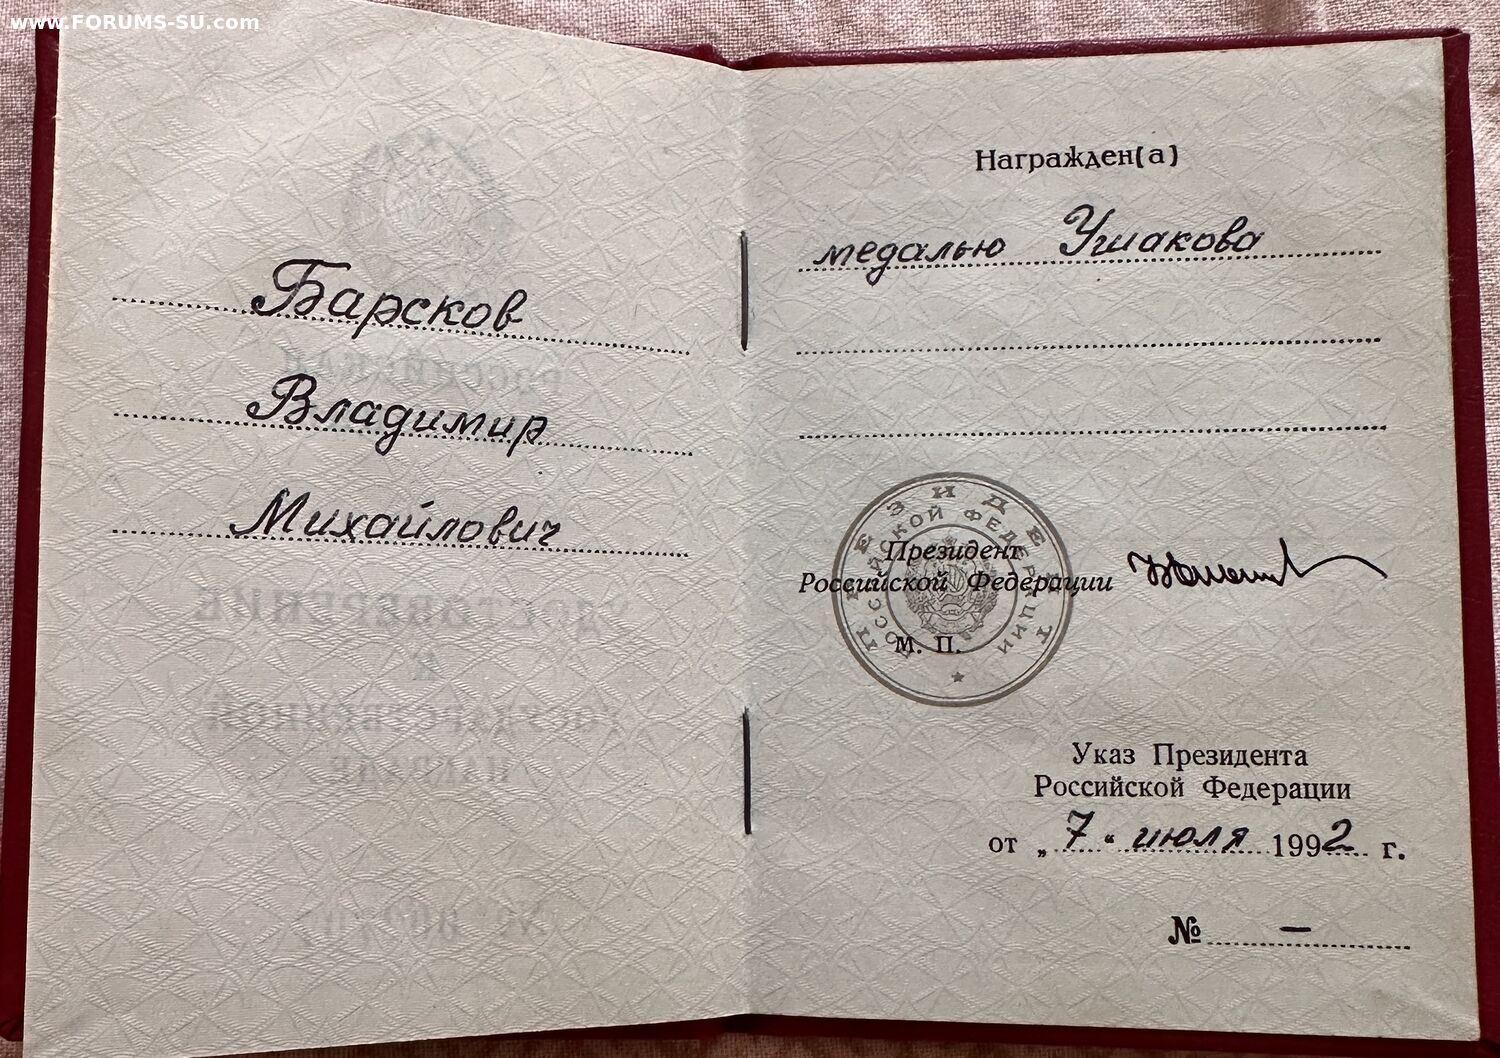 www.FORUMS-SU.com
Барсков
Владимир
Михайлович
Награжден(а)
медалью Ушакова
ПРЕЗИДЕНТ
РОССИЙСКОЙ ФЕДЕРАЦИИ
Президент
Российской Федерации
М. П.
Указ Президента
Российской Федерации
от „7“ июля 1992 г.
№ —